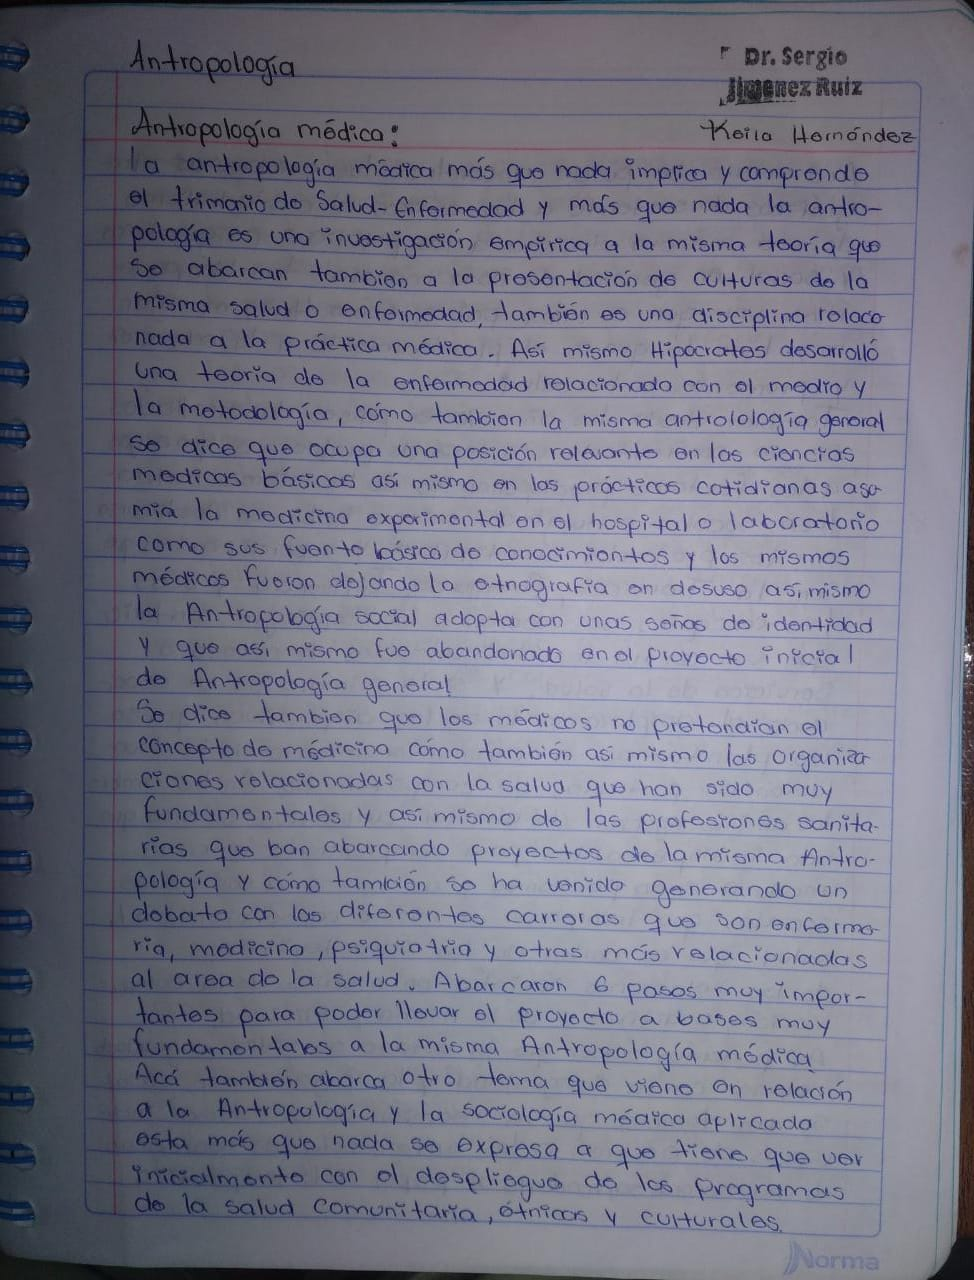 Antropología
Dr. Sergio
Jimenez Ruiz
Antropología médica:
Keila Hernández
la antropología médica más que nada implica y comprende
el trimonio de Salud-Enfermedad y más que nada la antro-
pología es una investigación empírica a la misma teoría que
se abarcan tambien a la presentación de culturas de la
misma salud o enfermedad, también es una disciplina relacio
nada a la práctica médica. Así mismo Hipócrates desarrolló
una teoría de la enfermedad relacionado con el medio y
la metodología, cómo tambien la misma antrolología general
se dice que ocupa una posición relevante en las ciencias
medicas básicas así mismo en las prácticas cotidianas asu
mia la medicina experimental en el hospital o laboratorio
como sus fuente básico de conocimientos y los mismos
médicos fueron dejando la etnografía en desuso así mismo
la Antropología social adopta con unas señas de identidad
y que así mismo fue abandonado en el proyecto inicial
de Antropología general
Se dice tambien que los médicos no pretendian el
concepto de médicina cómo también así mismo las organiza
ciones relacionadas con la salud que han sido muy
fundamentales y así mismo de las profesiones sanita-
rias que ban abarcando proyectos de la misma Antro-
pología y cómo también se ha venido generando un
debate con las diferentes carreras que son enferme
ría, medicina, psiquiatria y otras más relacionadas
al area de la salud. Abarcaron 6 pasos muy impor-
tantes para poder llevar el proyecto a bases muy
fundamentales a la misma Antropología médica
Acá también abarca otro tema que viene en relación
a la Antropología y la sociología médica aplicada
esta más que nada se expresa a que tiene que ver
inicialmente con el desplieque de los programas
de la salud comunitaria, étnicos y culturales.
Norma